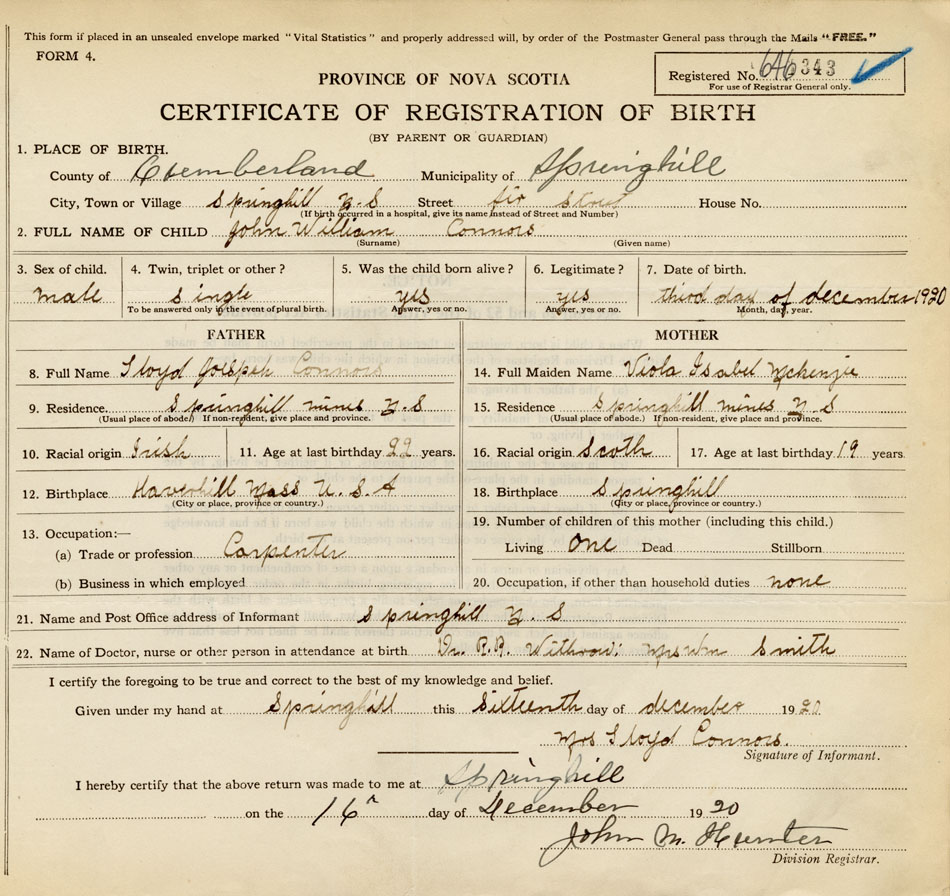 This form if placed in an unsealed envelope marked "Vital Statistics" and properly addressed will, by order of the Postmaster General pass through the Mails "FREE."
FORM 4.
Registered No. 646343
For use of Registrar General only.
PROVINCE OF NOVA SCOTIA
CERTIFICATE OF REGISTRATION OF BIRTH
(BY PARENT OR GUARDIAN)
1. PLACE OF BIRTH.
County of Cumberland Municipality of Springhill
City, Town or Village Springhill N.S Street fir Street House No.
(If birth occurred in a hospital, give its name instead of Street and Number)
2. FULL NAME OF CHILD John William Connors
(Surname) (Given name)
3. Sex of child. 4. Twin, triplet or other? 5. Was the child born alive? 6. Legitimate? 7. Date of birth.
male single yes yes third day of december 1920
To be answered only in the event of plural birth. Answer, yes or no. Answer, yes or no. Month, day, year.
FATHER MOTHER
8. Full Name Lloyd Joespeh Connors 14. Full Maiden Name Viola Isabel Mckenzie
9. Residence. Springhill mines N.S 15. Residence Springhill mines N.S
(Usual place of abode.) If non-resident, give place and province. (Usual place of abode.) If non-resident, give place and province.
10. Racial origin Irish 11. Age at last birthday 22 years. 16. Racial origin Scoth 17. Age at last birthday 19 years.
12. Birthplace Haverhill Mass U.S.A 18. Birthplace Springhill
(City or place, province or country.) (City or place, province or country.)
13. Occupation:— 19. Number of children of this mother (including this child.)
(a) Trade or profession Carpenter Living One Dead Stillborn
(b) Business in which employed 20. Occupation, if other than household duties none
21. Name and Post Office address of Informant Springhill N.S
22. Name of Doctor, nurse or other person in attendance at birth Dr. R.A. Withrow; Mrs Wm Smith
I certify the foregoing to be true and correct to the best of my knowledge and belief.
Given under my hand at Springhill this Sixteenth day of december 1920
Mrs Lloyd Connors.
Signature of Informant.
I hereby certify that the above return was made to me at Springhill
on the 16 day of December 1920
John M. Hunter
Division Registrar.